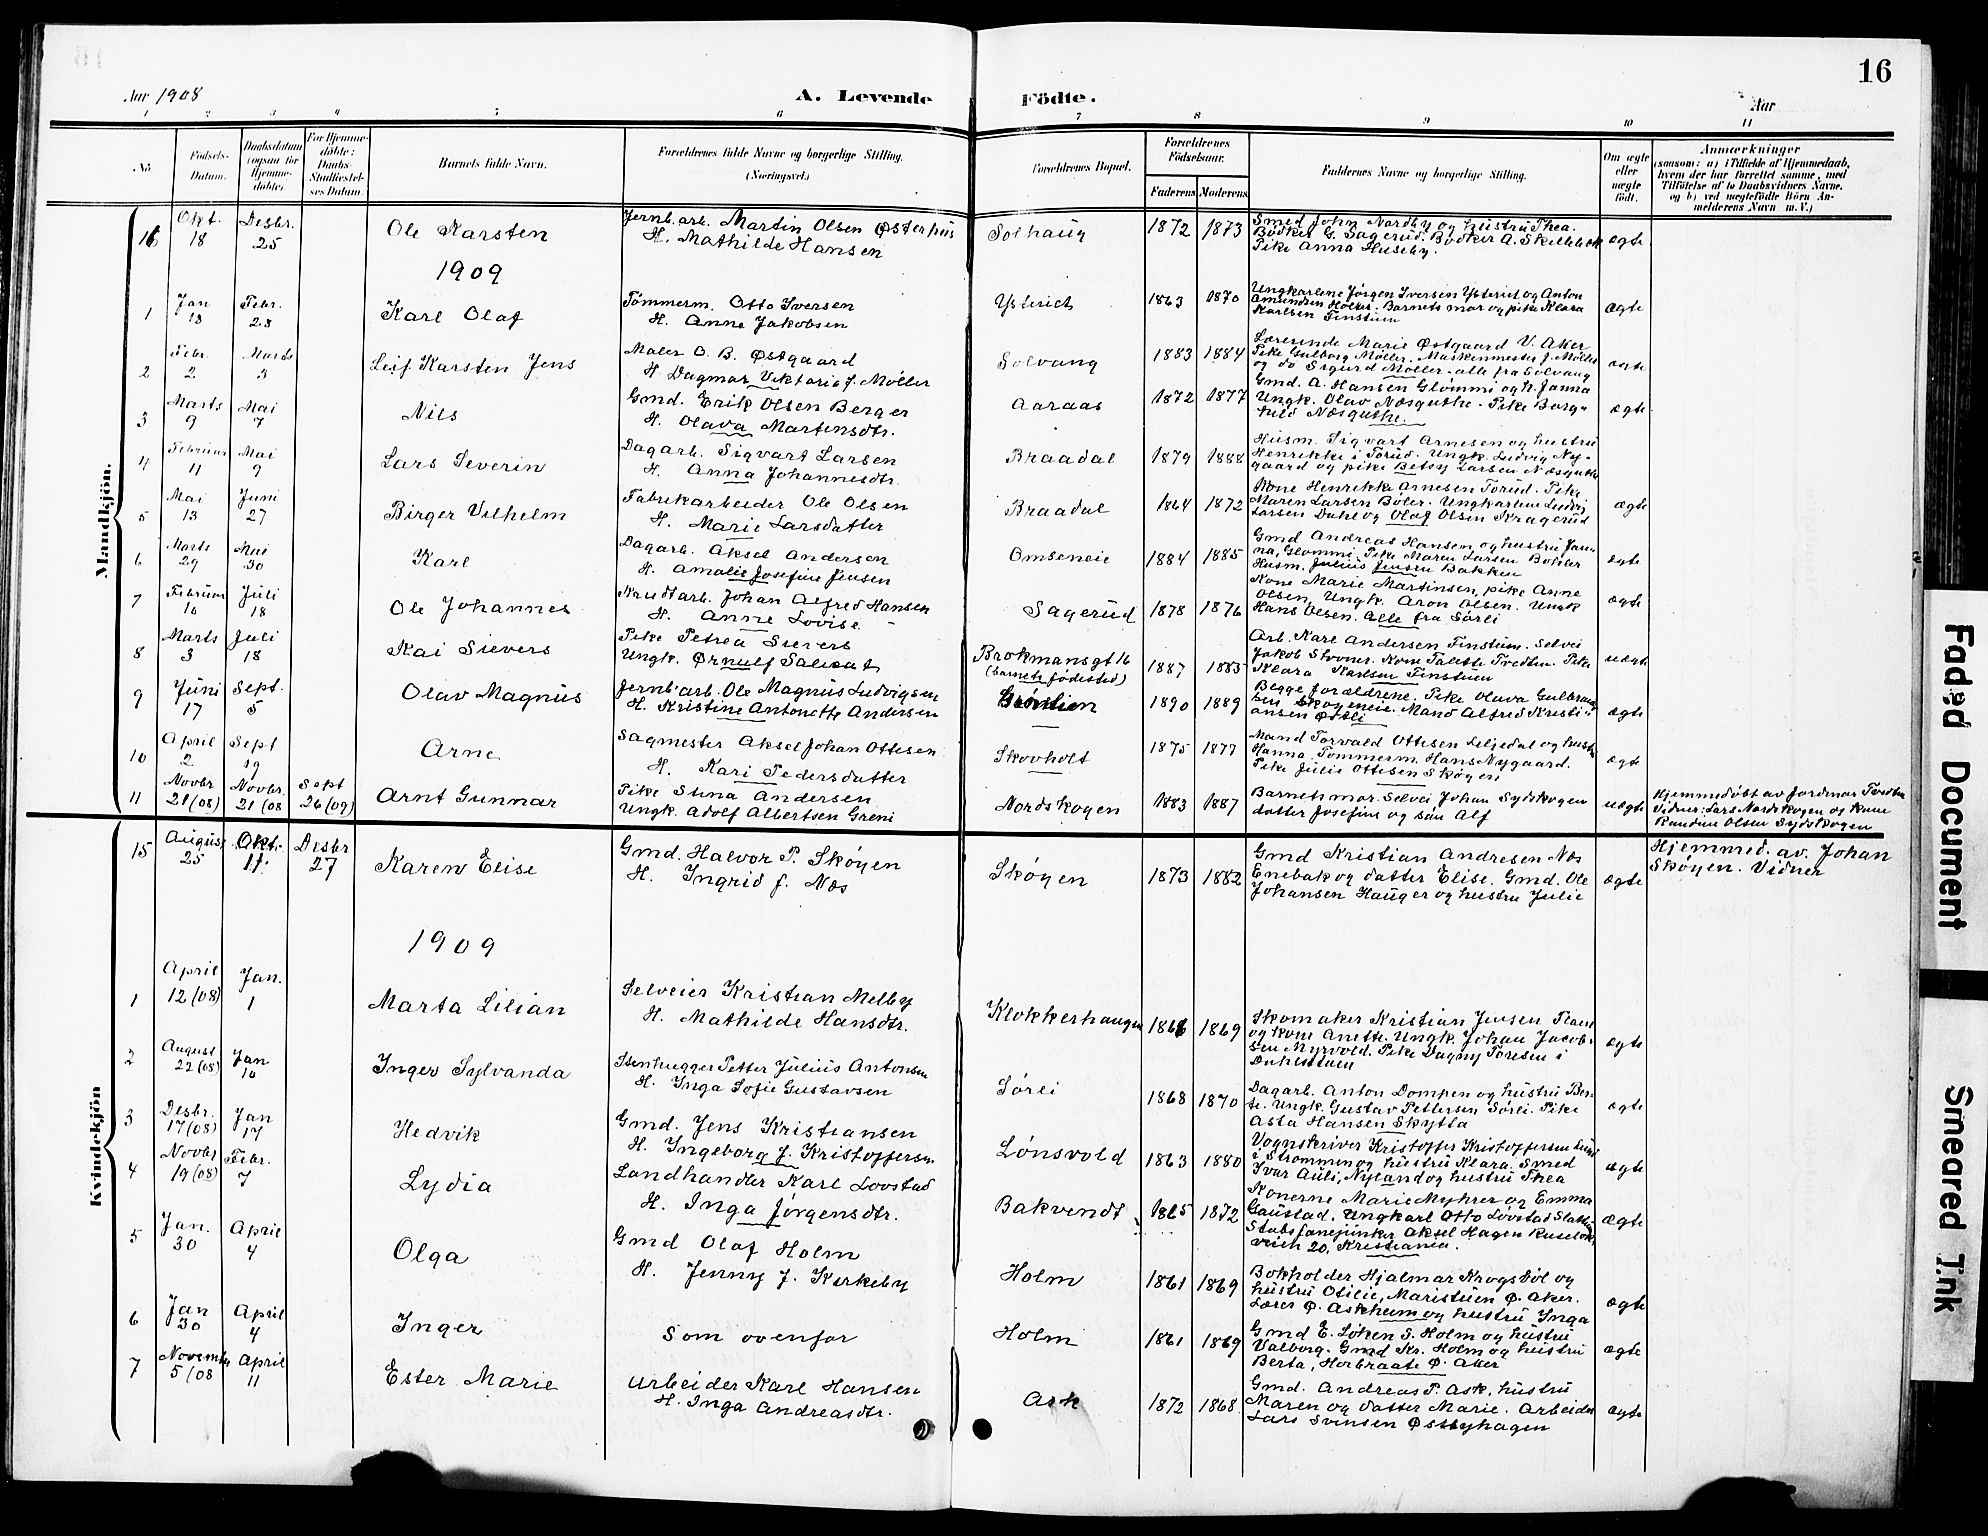 16
Aar 1908
A. Levende Födte.
Aar
1 2 3 4 5 6 7 8 9 10 11
No.
Födsels-
Datum.
Daabsdatum
(ogsaa for
Hjemme-
döbte).
For Hjemme-
döbte:
Daabs-
Stadfæstel-
ses Datum.
Barnets fulde Navn.
Forældrenes fulde Navne og borgerlige Stilling.
(Næringsvei.)
Forældrenes Bopæl.
Forældrenes
Födselsaar.
Faderens Moderens
Faddernes Navne og borgerlige Stilling.
Om ægte
eller
uægte
födt.
Anmærkninger
(saasom: a) i Tilfælde af Hjemmedaab,
hvem der har forrettet samme, med
Tilföielse af to Daabsvidners Navne.
og b) ved uægtefödte Börn An-
melderens Navn m. V.)
Mandkjön.
16
Okt.
18
Desbr.
25
Ole Karsten
Jernb.arb. Martin Olsen Østerhus
H. Mathilde Hansen
Solhaug
1872 1873
Smed John Nordby og hustru Thea.
Bødker G. Sagerud. Bødker A. Skillebek
Pike Anna Huseby.
ægte
1909
1
Jan
18
Febr.
28
Karl Olaf
Tømmerm. Otto Iversen
H. Anne Jakobsen
Ysterict
1863 1870
Ungkarlene Jørgen Iversen Ysteriet og Anton
Amundsen Holter. Barnets mor og pike Klara
Karlsen Finstuen
ægte
2
Febr.
2
Marts
3
Leif Karsten Jens
Maler O. B. Østgaard
H. Dagmar Viktoria f. Møller
Solvang
1883 1884
Lærerinde Marie Østgaard V. Aker
Pike Gulborg Møller. Maskinmester J. Møller
og do Sigurd Møller - alle fra Solvang
ægte
3
Marts
9
Mai
7
Nils
Gmd. Erik Olsen Berger
H. Olava Martensdtr.
Aaraas
1872 1877
Gmd. A. Hansen Glømmi og h. Janna
Ungk. Olav Næsguthe. Pike Borg-
hild Næsguthe.
ægte
4
Februar
11
Mai
9
Lars Severin
Dagarb. Sigvart Larsen
H. Anna Johannesdtr.
Braadal
1879 1888
Husm. Sigvart Arnesen og hustru
Henrikke i Torud. Ungk. Ludvig Ny-
gaard og pike Betsy Larsen Næsguthe
5
Mai
13
Juni
27
Birger Vilhelm
Fabrikarbeider Ole Olsen
H. Marie Larsdatter
Braadal
1864 1872
Kone Henrikke Arnesen Torud. Pike
Maren Larsen Bøler. Ungkarlene Ludvig
Larsen Dahl og Olaf Olsen Kragerud
ægte
6
Marts
29
Mai
30
Karl
Dagarb. Aksel Andersen
H. Amalie Josefine Jensen
Omseneie
1884 1885
Gmd Andreas Hansen og hustru Jan-
na, Glommi. Pike Maren Larsen Bohler
Husm. Julius Jensen Bakken
ægte
7
Februar
10
Juli
18
Ole Johannes
Johan Alfred Hansen
H. Anne Lovise
Sagerud
1878 1876
Kone Marie Martinsen, pike Anne
Olsen, Ungk. Aron Olsen. Ungk
Hans Olsen. Alle fra Sørli
ægte
8
Marts
3
Juli
18
Kai Sievers
Pike Petrea Sievers
Ungk. Ørnulf Salicat
Brokmansgt 16
(barnets fødested)
1887 1885
Arb. Karl Andersen Finstuen. Selvei
Jakob Skovner. Kone Talette Tvedten. Pike
Klara Karlsen Finstuen
uægte
9
Juni
17
Sept.
5
Olav Magnus
Jernb.arb. Ole Magnus Ludvigsen
H. Kristine Antonette Andersen
Grønlien
1890 1889
Begge forældrene. Pike Olava Gulbrand
sen Skogeneie. Mand Alfred Kristi-
ansen Østli
ægte
10
April
2
Sept
19
Arne
Sagmester Aksel Johan Ottesen
H. Kari Pedersdatter
Skovholt
1875 1877
Mand Torvald Ottesen Liljedal og hustru
Hanna. Tømmerm. Hans Nygaard.
Pike Julie Ottesen Skøyen
ægte
11
Novbr
21 (08)
Novbr.
21 (08
Sept
26 (09)
Arnt Gunnar
Pike Stina Andersen
Ungk. Adolf Albertsen Greni
Nordskogen
1883 1887
Barnets mor. Selvei Johan Sydskogen
datter Josefine og søn Alf
uægte
Hjemmedøbt av Jordmor Tvedten
Vidner: Lars Nordskogen og kone
Randine Olsen Sydskogen
Kvindekjön
15
August
25
Okt.
11.
Desbr
27
Karen Elise
Gmd. Halvor P. Skøyen
H. Ingrid f. Næs
Skøyen
1873 1882
Gmd Kristian Andresen Næs
Enebak og datter Elise. Gmd. Ole
Johansen Hauger og hustru Julie
ægte
Hjemmed. av. Johan
Skøyen. Vidner
1909
1
April
12 (08)
Jan.
1
Marta Lilian
Selveier Kristian Melby
H. Mathilde Hansdtr.
Klokkerhaugen
1866 1869
Skomaker Kristian Jensen
og kone Anette. Ungk. Johan Jacob-
sen Myrvold. Pike Dagny Toresen i
Dahlstuen
ægte
2
August
22 (08)
Jan
10
Inger Sylvanda
Stenhugger Petter Julius Antonsen
H. Inga Sofie Gustavsen
Sørli
1868 1870
Dagarb. Anton Dompen og hustru Ber-
te. Ungk. Gustav Pettersen Sørli. Pike
Asta Hansen Skytta
ægte
3
Desbr.
17 (08)
Jan
17
Hedvik
Gmd. Jens Kristiansen
H. Ingeborg f. Kristoffersen
Lønsvold
1863 1880
Vognskriver Kristoffer Kristoffersen Lund
i Strømmen og hustru Klara. Smed
Ivar Auli, Nyland og hustru Thea
ægte
4
Novbr
19 (08)
Febr.
7
Lydia
Landhandler Karl Lovstad
H. Inga Jørgensdtr.
Bakvendt
1865 1872
Konerne Marie Myhrer og Emma
Gaustad. Ungkarl Otto Løvstad
Stabsfanejunker Aksel Hagen
veien 20, Kristiania.
ægte
5
Jan.
30
April
4
Olga
Gmd Olaf Holm
H. Jenny f. Kirkeby
Holm
1861 1869
Bokholder Hjalmar Krogsbøl og
hustru Otilie, Maristuen Ø. Aker.
Lærer Ø. Askheim og hustru Inga
ægte
6
Jan
30
April
4
Inger
Som ovenfor
Holm
1861 1869
Gmd E. Løken S. Holm og hustru
Valborg. Gmd Kr. Holm og hustru
Berta, Horbraate Ø. Aker
ægte
7
November
5/08
April
11
Ester Marie
Arbeider Karl Hansen
H. Inga Andreasdtr.
Ask
1872 1868
Gmd. Andreas P. Ask, hustru
Maren og datter Marie. Arbeider
Lars Svensen Østbyhagen
ægte
Faded Document
Smeared Ink